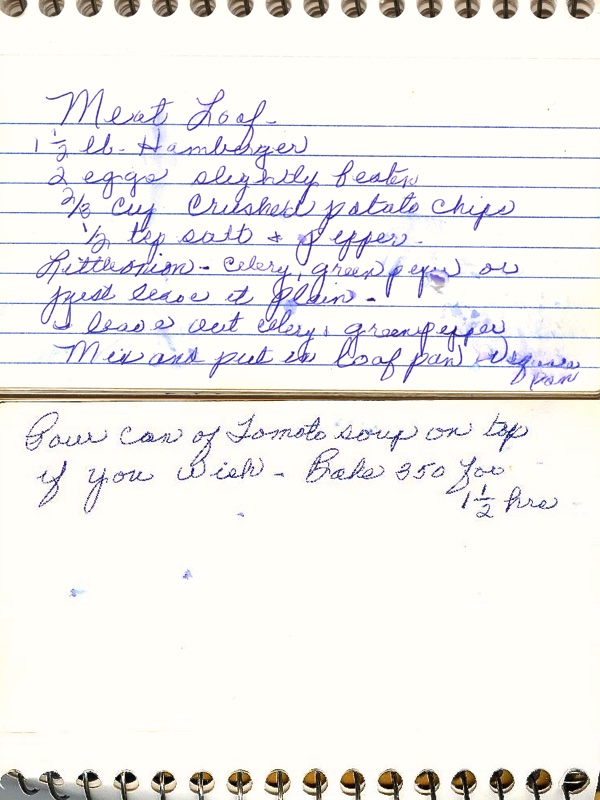 Meat Loaf -
1 1/2 lb - Hamberger
2 eggs slightly beaten
2/3 cup crushed potato chips
1/2 tsp salt & pepper -
Little onion - celery, green pepper or
just leave it plain -
I leave out celery & green pepper
Mix and put in loaf pan or square
pan
Pour can of Tomato soup on top
if you wish - Bake 350 for
1 1/2 hrs